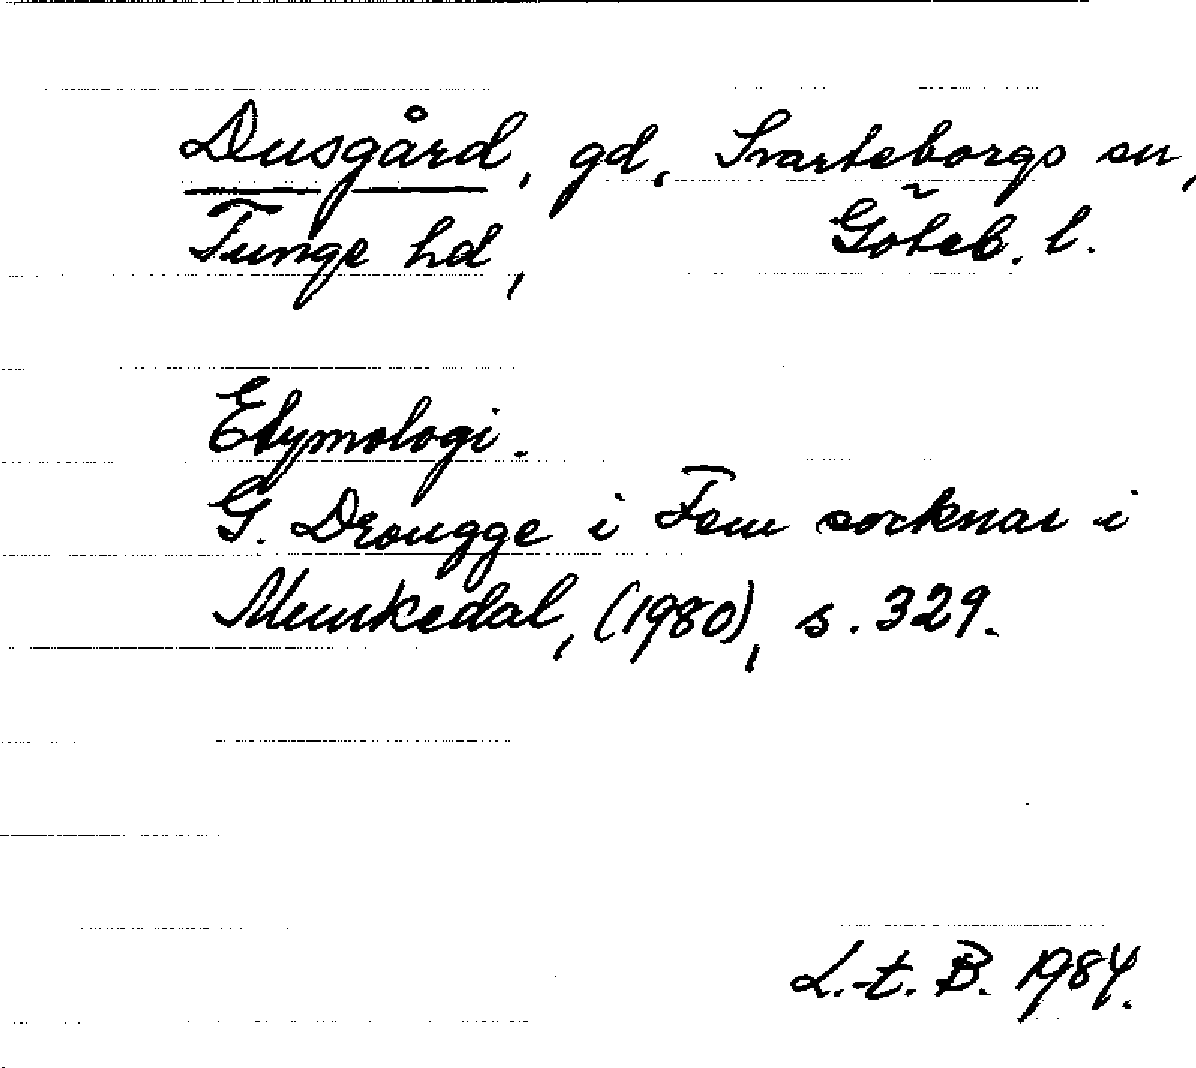 Dusgård, gd, Svarteborgs sn,
Tunge hd, Göteb. l.
Etymologi.
G. Drougge i Fem socknar i
Munkedal, (1980), s. 329.
L.-t. B. 1984.